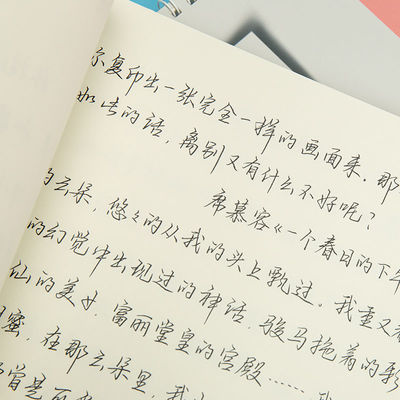 你复印出一张完全一样的画面来.那
如此的话,离别又有什么不好呢?
席慕容《一个春日的下午
的云朵,悠々的从我的头上飘过。我重又看
的幻觉中出现过的神话.骏马拖着的
仙的美女.富丽堂皇的宫殿……我
蜜.在那云朵里,我
曾是